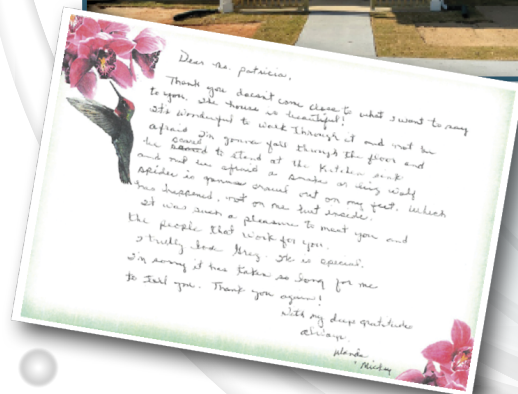 Dear Ms. Patricia,
Thank you doesn't come close to what I want to say
to you. The house is beautiful!
It's wonderful to walk through it and not be
afraid I'm gonna fall through the floor and
be scared to stand at the kitchen sink
and not be afraid a snake or big wolf
spider is gonna crawl out on my feet. Which
has happened, not on me but inside.
It was such a pleasure to meet you and
the people that work for you.
I truly love Greg. He is special.
I'm sorry it has taken so long for me
to tell you. Thank you again!
With my deep gratitude
always,
Wanda
Mickey